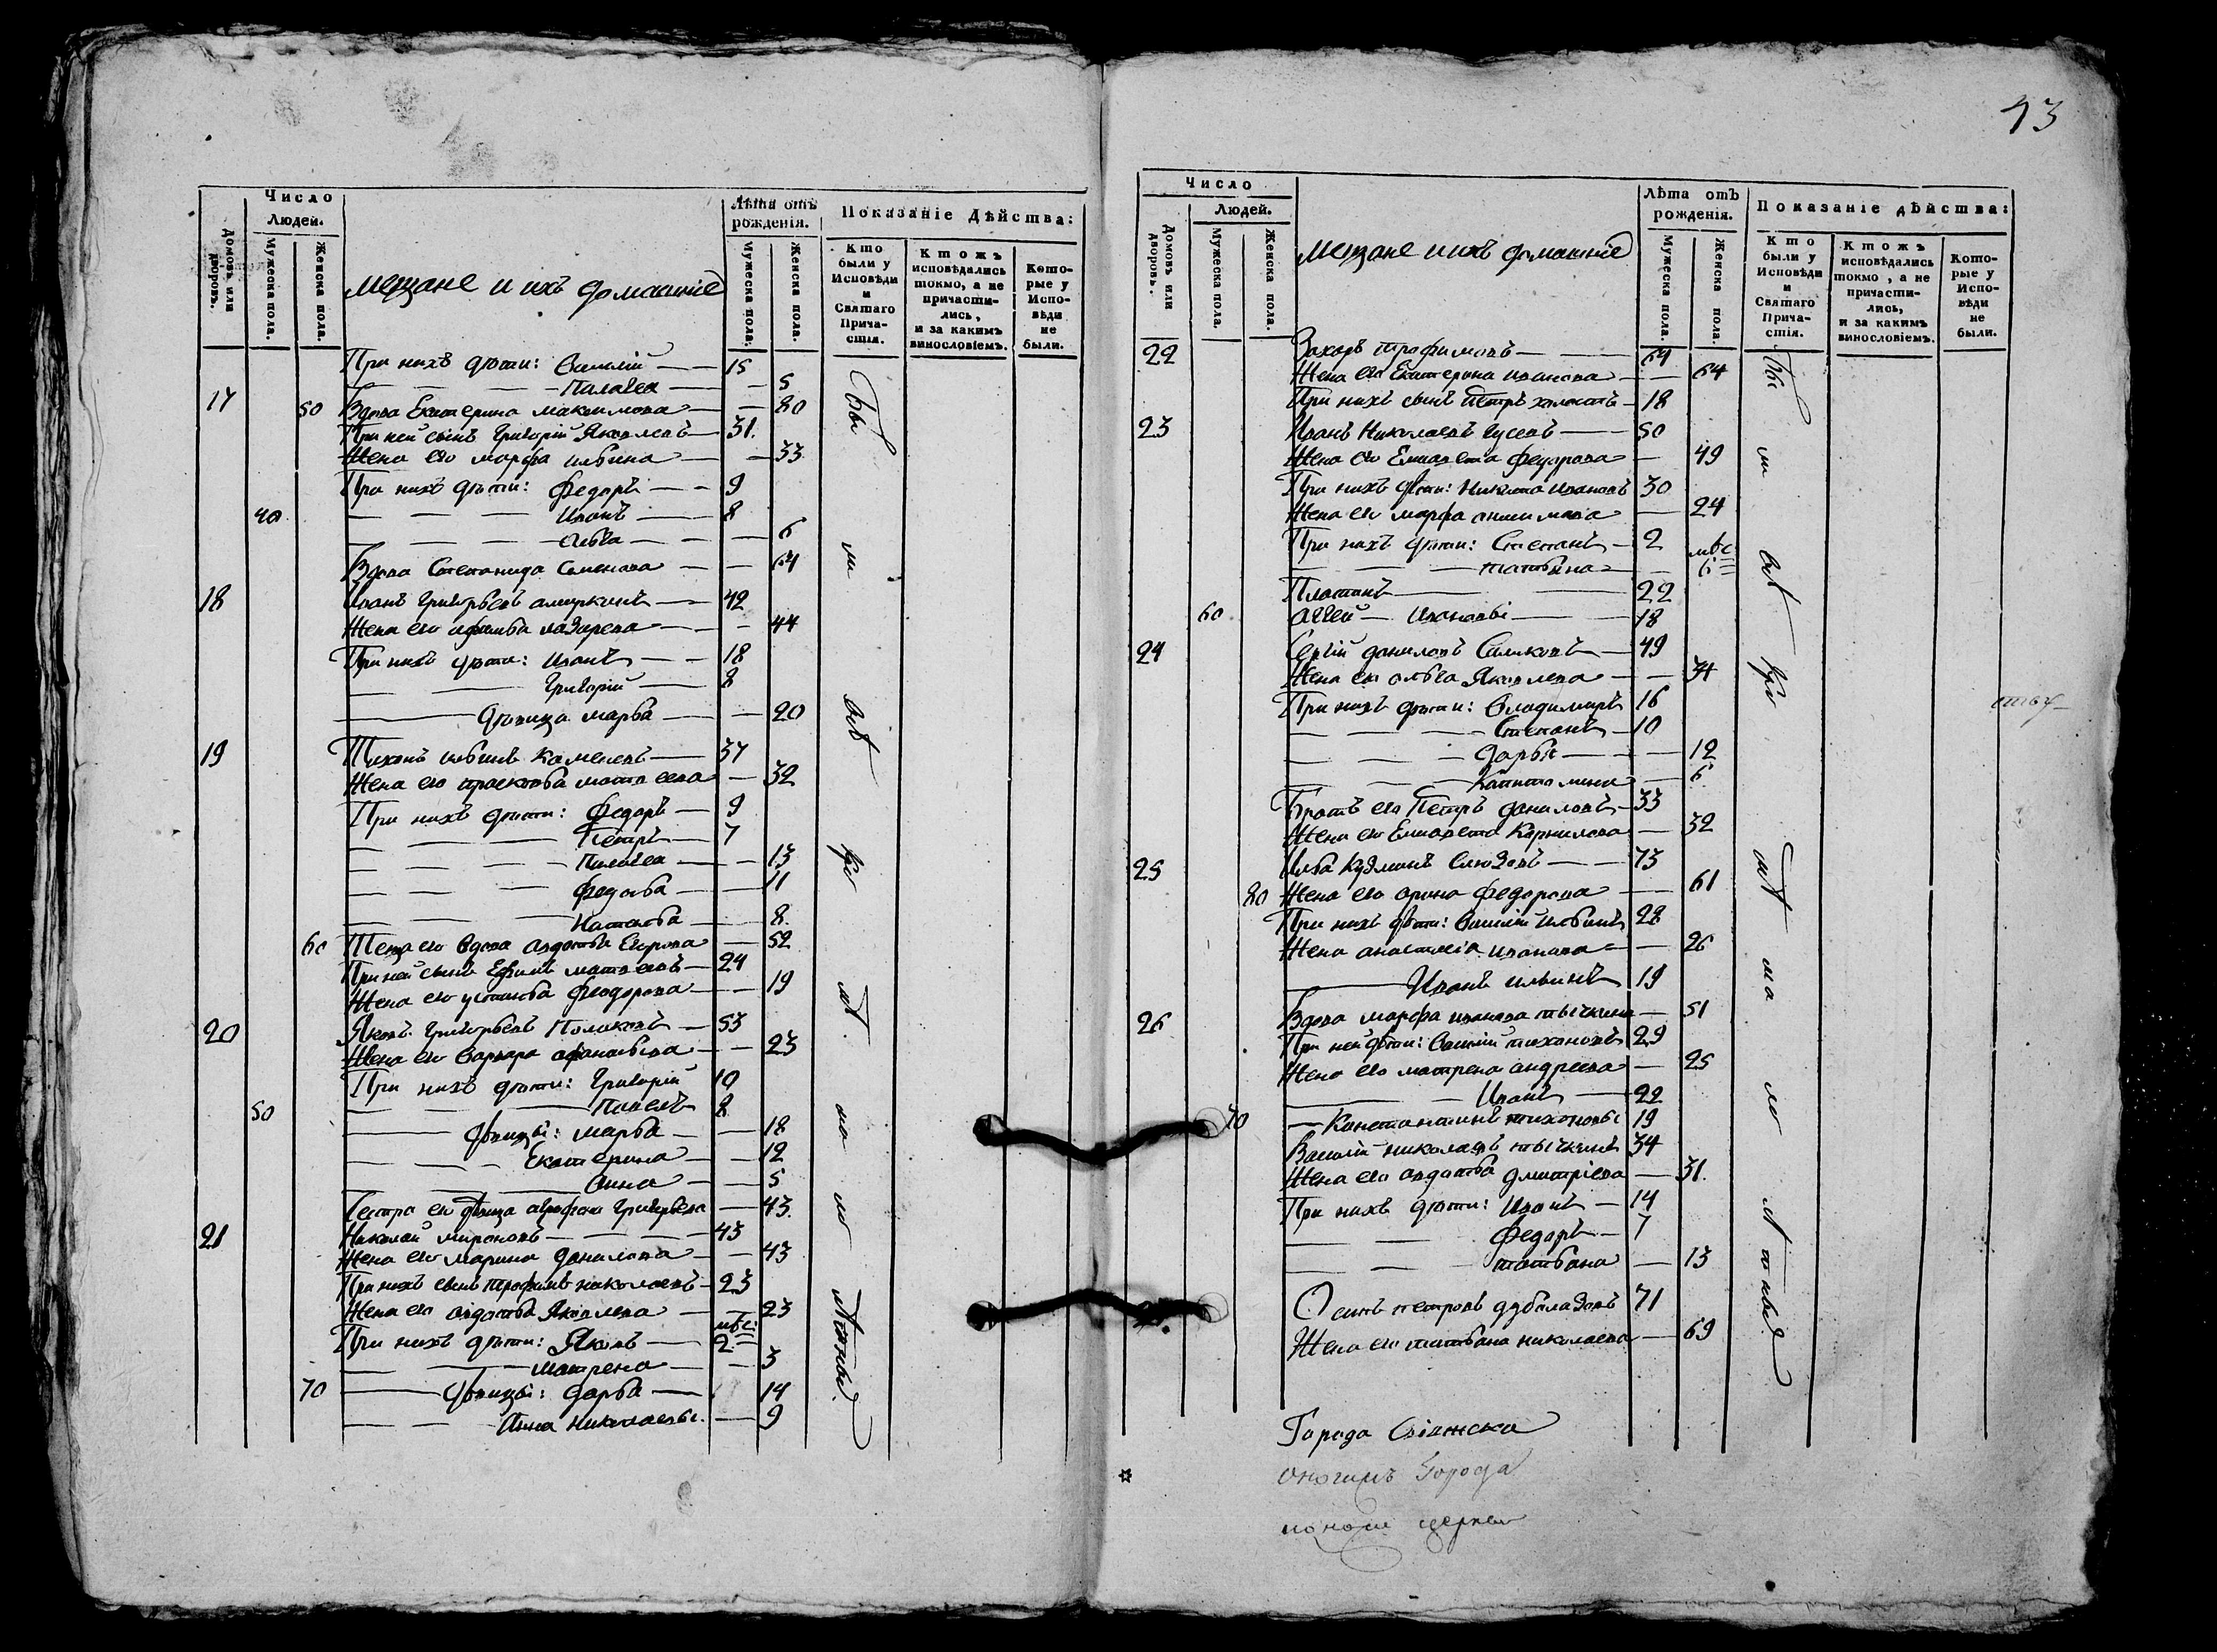 Число
Людей.
Домовъ или дворовъ.
Мужеска пола.
Женска пола.
мещане и ихъ домашніе
Лѣта отъ рожденія.
Мужеска пола.
Женска пола.
Показаніе Дѣйства:
Кто были у Исповѣди и Святаго Прича-стія.
Ктожъ исповѣдались токмо, а не причасти-лись, и за какимъ винословіемъ.
Кото-рые у Испо-вѣди не были.
При нихъ дѣти: Василій 15
Палагея 5
17 50 Вдова Екатерина максимова 80
При ней сынъ Григорій Яковлевъ 31.
Жена его марфа ильина 33
При нихъ дѣти: Федоръ 9
40 Иванъ 8
Ольга 6
Вдова Степанида Семенова 64
18 Иванъ Григорьевъ 42
Жена его лазарева 44
При нихъ дѣти: Иванъ 18
Григорій 8
дѣвица марья 20
19 Тихонъ ильинъ 37
Жена его прасковья матвеева 32
При нихъ дѣти: Федоръ 9
Петръ 7
Палагея 13
Федосья 11
Наталья 8
60 Теща его вдова авдотья Егорова 52
При ней сынъ Ефимъ матвеевъ 24
Жена его устинья Феодорова 19
20 Яковъ Григорьевъ Поляковъ 53
Жена его варвара афанасьева 23
При нихъ дѣти: Григорій 10
50 Павелъ 8
дѣвицы: марья 18
Екатерина 12
Анна 5
Сестра его дѣвица Григорьева 43.
21 Николай мироновъ 43
Жена его марина данилова 43
При нихъ сынъ трофимъ николаевъ 23
Жена его авдотья Яковлева 23
При нихъ дѣти: Яковъ мѣс: 2
матрена 3
70 дѣвицы: дарья 14
Анна николаевы. 9
43
Число
Людей.
Домовъ или дворовъ.
Мужеска пола.
Женска пола.
мещане и ихъ домашніе
Лѣта отъ рожденія.
Мужеска пола.
Женска пола.
Показаніе дѣйства:
Кто были у Исповѣди и Святаго Прича-стія.
Ктожъ исповѣдались токмо, а не причасти-лись, и за какимъ винословіемъ.
Кото-рые у Испо-вѣди не были.
22 Захаръ трофимовъ 64
Жена его Екатерина иванова 64
При нихъ сынъ Петръ холостъ 18
23 Иванъ Николаевъ Гусевъ 50
Жена его Елизавета федорова 49
При нихъ дѣти: Никита ивановъ 30
Жена его марфа 24
При нихъ дѣти: Степанъ 2
татьяна мѣс 6
Платонъ 22
60 Аггей Ивановы 18
24 Сергій даниловъ 49
Жена его ольга Яковлева 34
При нихъ дѣти: Владимиръ 16
Степанъ 10
дарья 12
Капитолина 6
Братъ его Петръ даниловъ 33
Жена его Елизавета Корнилова 32
25 Илья Кузминъ 73
80 Жена его арина Федорова 61
При нихъ дѣти: Василій ильинъ 28
Жена анастасія иванова 26
Иванъ ильинъ 19
26 Вдова марфа иванова тычкина 51
При ней дѣти: Василій тихоновъ 29
Жена его матрена андреева 25
Иванъ 22
70 Константинъ тихоновы 19
Василій николаевъ тычкинъ 34
Жена его авдотья дмитріева 31.
При нихъ дѣти: Иванъ 14
Федоръ 7
татьяна 13
Осипъ петровъ 71
Жена его татьяна николаева 69
Города Свіяжска
города
церкви